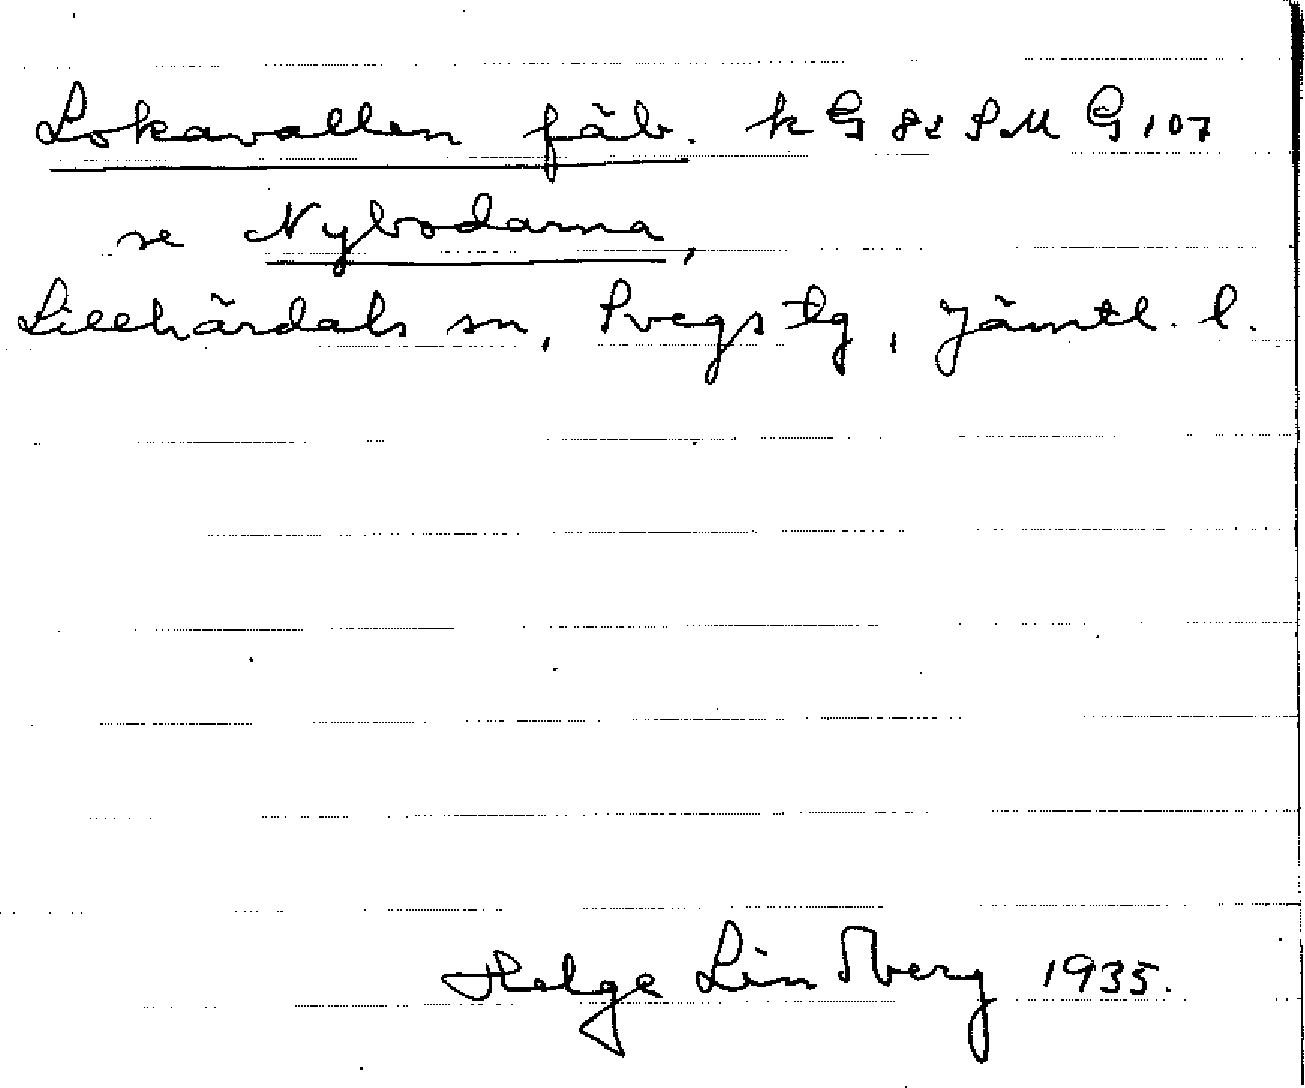 Lokavallen fäb. k G 82 SM G 107
se Nybodarna,
Lillhärdals sn, Svegs tg, Jämtl. l.
Helge Lindberg 1935.